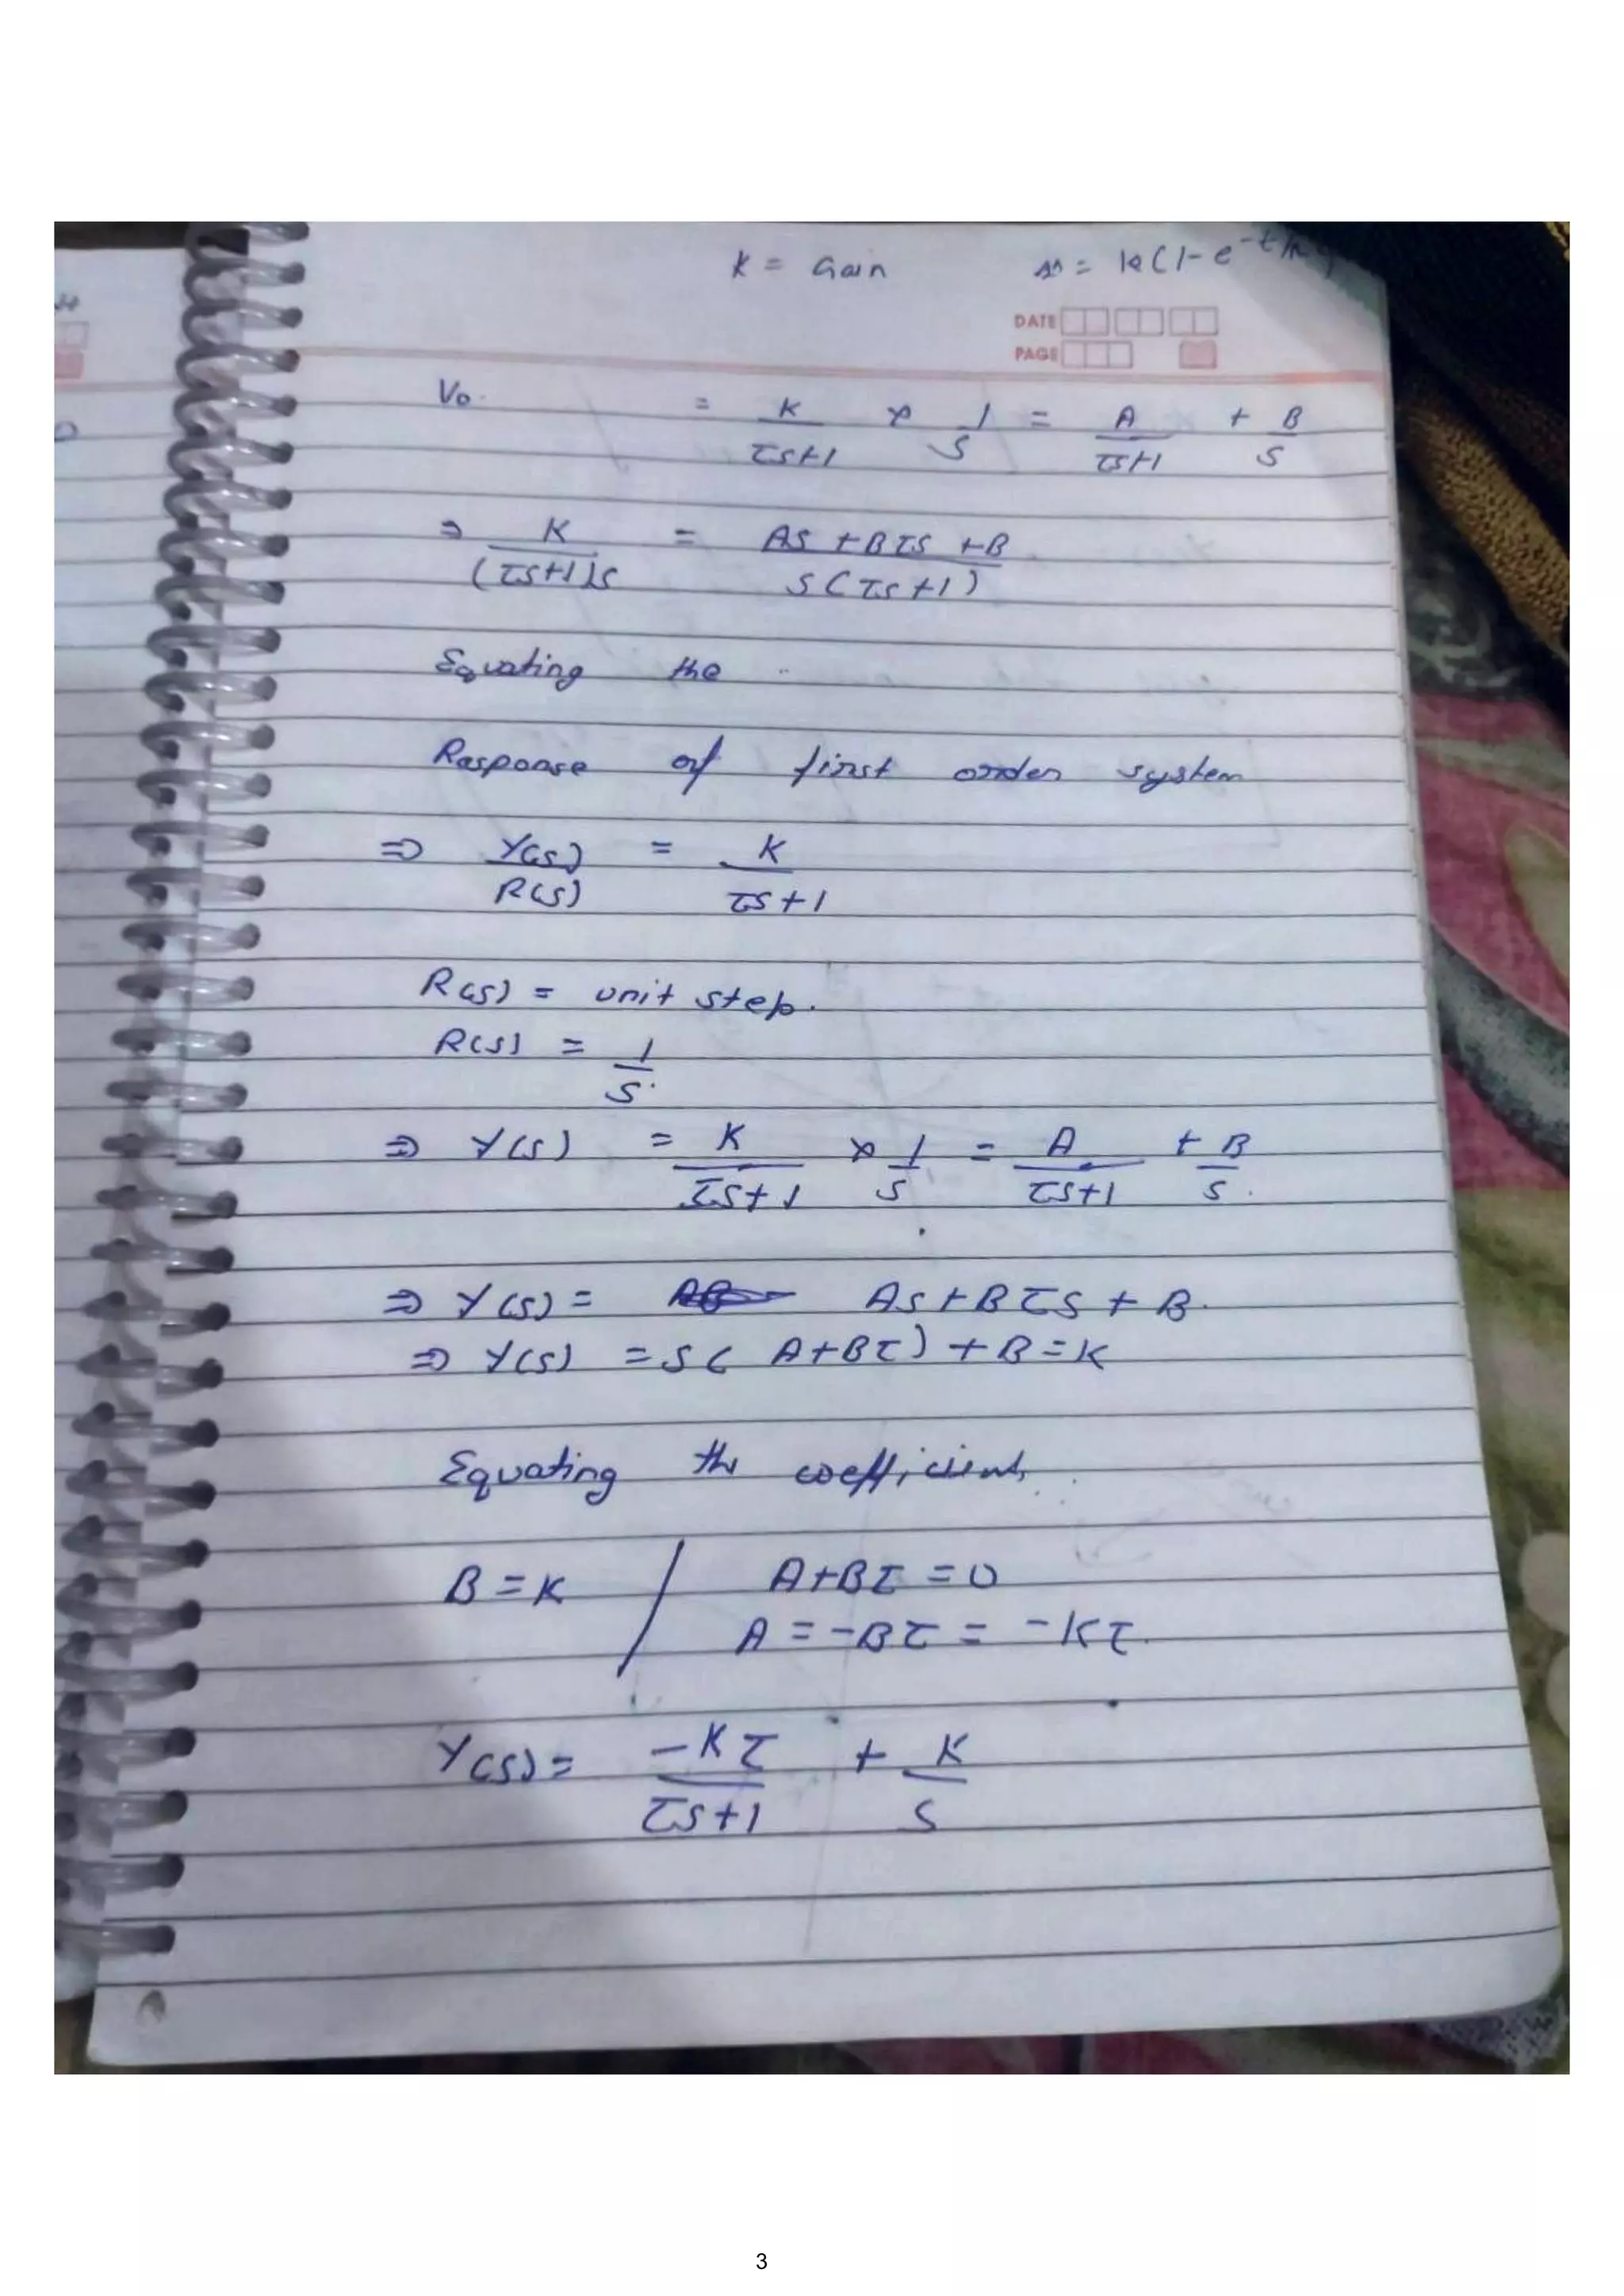 K = Gain
= k(1-e^-t/
DATE
PAGE
Vo. = K/(τs+1) × 1/s = A/(τs+1) + B/s
⇒ K/((τs+1)s) = (As + Bτs + B)/(s(τs+1))
Equating the
Response of first order system
⇒ Y(s)/R(s) = K/(τs+1)
R(s) = unit step.
R(s) = 1/s.
⇒ Y(s) = K/(τs+1) × 1/s = A/(τs+1) + B/s.
⇒ Y(s) = As+Bτs + B.
⇒ Y(s) = s( A+Bτ) + B = K
Equating the coefficients.
B = K / A+Bτ = 0
A = -Bτ = -Kτ.
Y(s) = -Kτ/(τs+1) + K/s
3